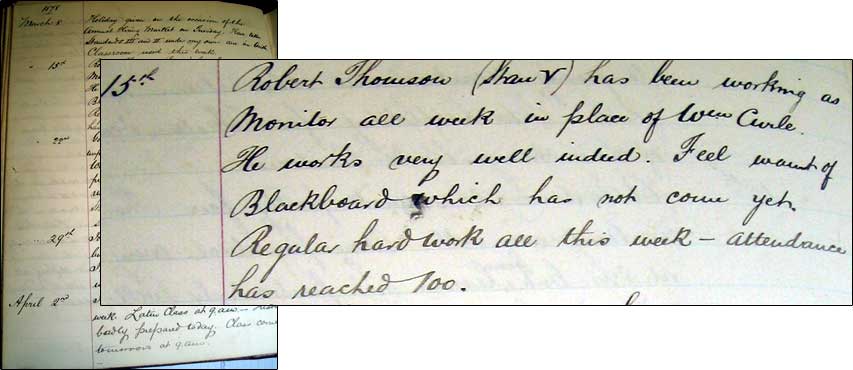 1878
March 8
Holiday given on the occasion of the
Annual Hiring Market on Tuesday. Have taken
Standards III and IV under my own care in
Classroom used this week.
" 15th
" 22nd
" 29th
15th Robert Thomson (Stan V) has been working as
Monitor all week in place of Wm Curle.
He works very well indeed. Feel want of
Blackboard which has not come yet.
Regular hard work all this week – attendance
has reached 100.
April 2nd
week. Latin Class at 9 a.m. –
badly prepared today. Class come
tomorrow at 9 a.m.